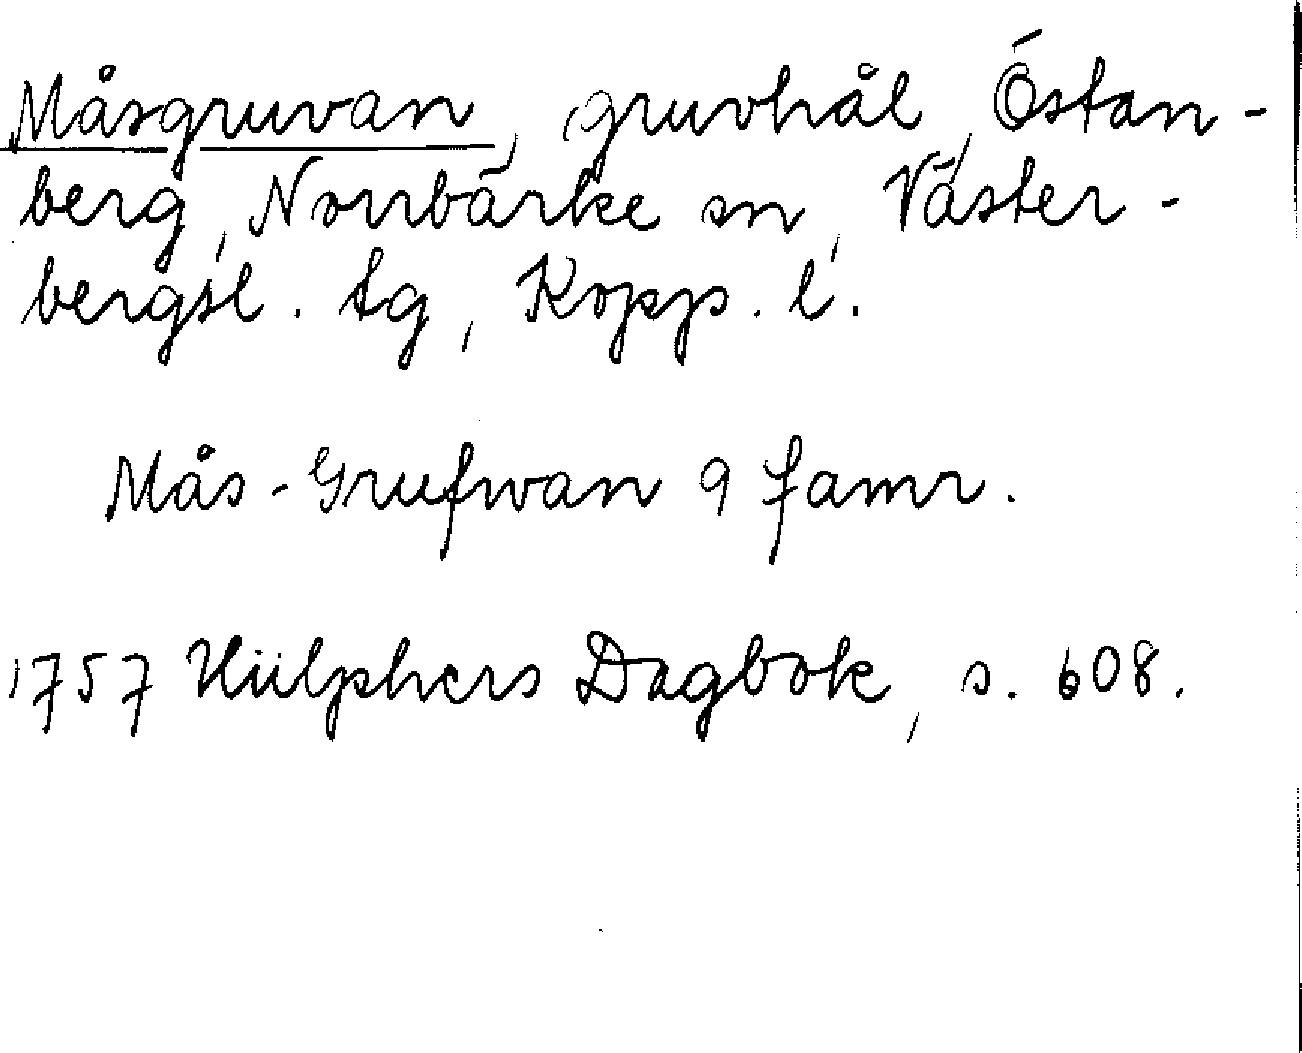 Måsgruvan, gruvhål, Östan-
berg, Norrbärke sn, Väster-
bergsl. tg, Kopp. l.
Mås-Grufwan 9 famr.
1757 Hülphers Dagbok, s. 608.